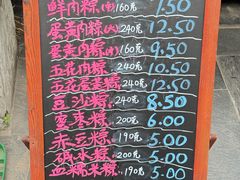 鲜肉粽(中)160克 7.50
蛋黄肉粽(大)240克 12.50
蛋黄肉粽 160克 9.50
五花肉粽 240克 10.50
五花蛋黄粽 240克 12.50
豆沙粽 240克 8.50
蜜枣粽 200克 6.00
赤豆粽 190克 5.00
碱水粽 200克 5.00
血糯米粽 190克 5.00